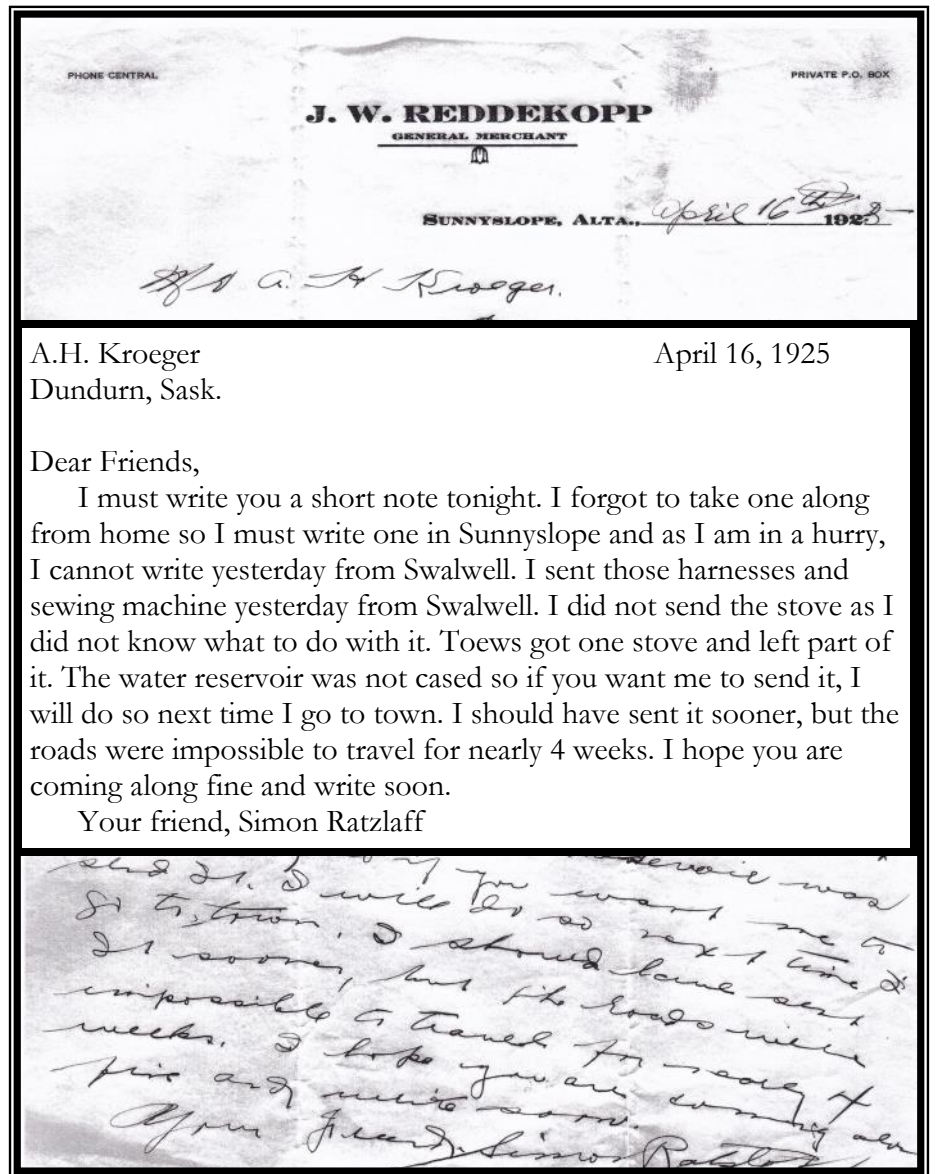 PHONE CENTRAL
PRIVATE P.O. BOX
J. W. REDDEKOPP
GENERAL MERCHANT
SUNNYSLOPE, ALTA., April 16th 1925
A. H Kroeger.
A.H. Kroeger April 16, 1925
Dundurn, Sask.
Dear Friends,
I must write you a short note tonight. I forgot to take one along
from home so I must write one in Sunnyslope and as I am in a hurry,
I cannot write yesterday from Swalwell. I sent those harnesses and
sewing machine yesterday from Swalwell. I did not send the stove as I
did not know what to do with it. Toews got one stove and left part of
it. The water reservoir was not cased so if you want me to send it, I
will do so next time I go to town. I should have sent it sooner, but the
roads were impossible to travel for nearly 4 weeks. I hope you are
coming along fine and write soon.
Your friend, Simon Ratzlaff
reservoir was
if you want me to
send It. I will do so next time I
go to town. I should have sent
It sooner, but the roads were
impossible to travel for nearly 4
weeks. I hope you are coming along
fine and write soon.
Your friend, Simon Ratzlaff